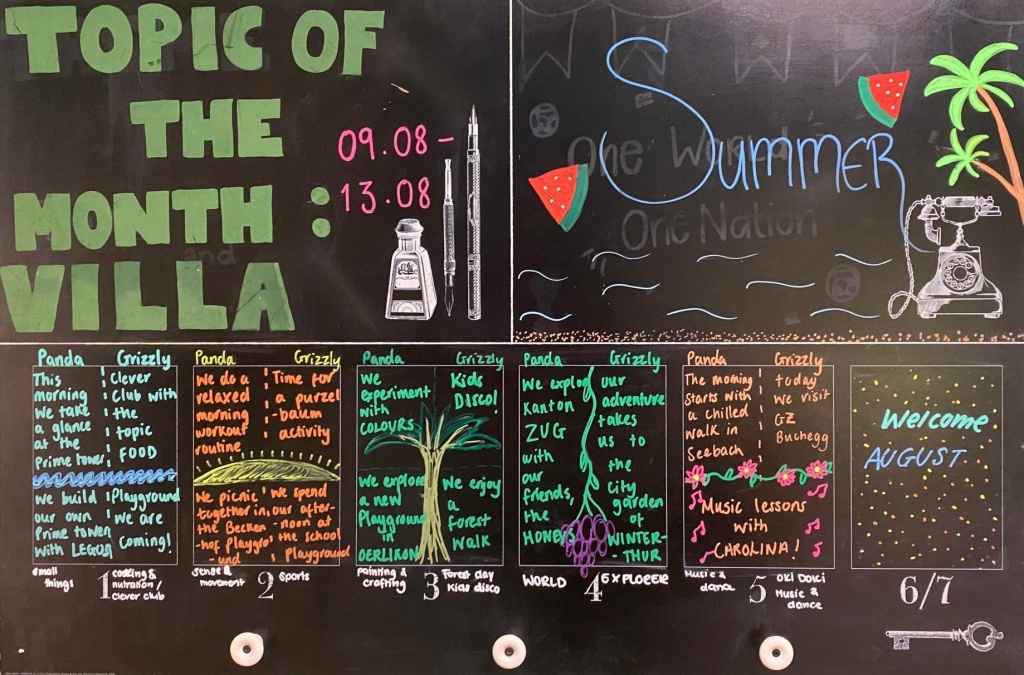 TOPIC OF
THE
MONTH :
VILLA
09.08 -
13.08
Summer
One World
One Nation
and
Panda Grizzly
This
morning
we take
a glance
at the
prime tower
Clever
Club with
the
topic
FOOD
we build
our own
Prime tower
with LEGOS
Playground
we are
coming!
small
things
1
cooking &
nutration /
clever club
Panda Grizzly
we do a
relaxed
morning
workout
routine
Time for
a purzel
-baum
activity
we picnic
together in
the Becken
-hof Playgro
-und
we spend
our after-
-noon at
the school
Playground
sense &
movement
2
sports
Panda Grizzly
we
experiment
with
colours
Kids
DISCO!
we explore
a new
Playground
in
OERLIKON
we enjoy
a
forest
walk
painting &
crafting
3
Forest day
Kids disco
Panda Grizzly
we explor
Kanton
ZUG
with
our
friends,
the
HONEYS
our
adventure
takes
us to
the
city
garden
of
WINTER-
THUR
WORLD
4
EXPLORER
Panda Grizzly
The morning
starts with
a chilled
walk in
Seebach
today
we visit
GZ
Buchegg
Music lessons
with
CAROLINA!
Music &
danc
5
OKI DOKI
Music &
dance
Welcome
AUGUST
6/7